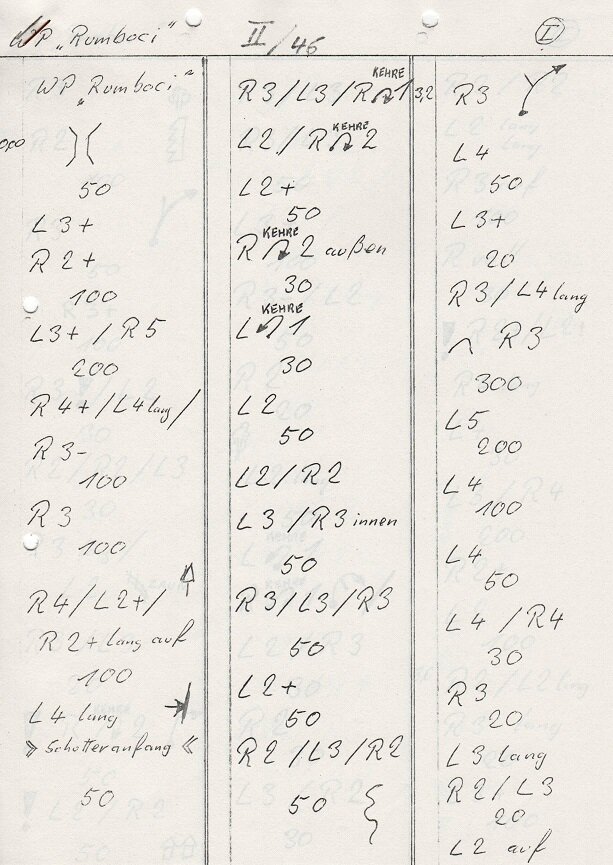 WP „Rumboci“
II/46
I
WP „Rumboci“
50
L3+
R2+
100
L3+ / R5
200
R4+ / L4 lang /
R3-
100
R3
100
R4 / L2+ /
R2+ lang auf
100
L4 lang
» Schotteranfang «
50
KEHRE
R3 / L3 / R 1
3,2
KEHRE
L2 / R 2
L2+
50
KEHRE
R 2 außen
30
KEHRE
L 1
30
L2
50
L2 / R2
L3 / R3 innen
50
R3 / L3 / R3
50
L2+
50
R2 / L3 / R2
50
R3
L4
50
L3+
20
R3 / L4 lang
R3
300
L5
200
L4
100
L4
50
L4 / R4
30
R3
20
L3 lang
R2 / L3
20
L2 auf